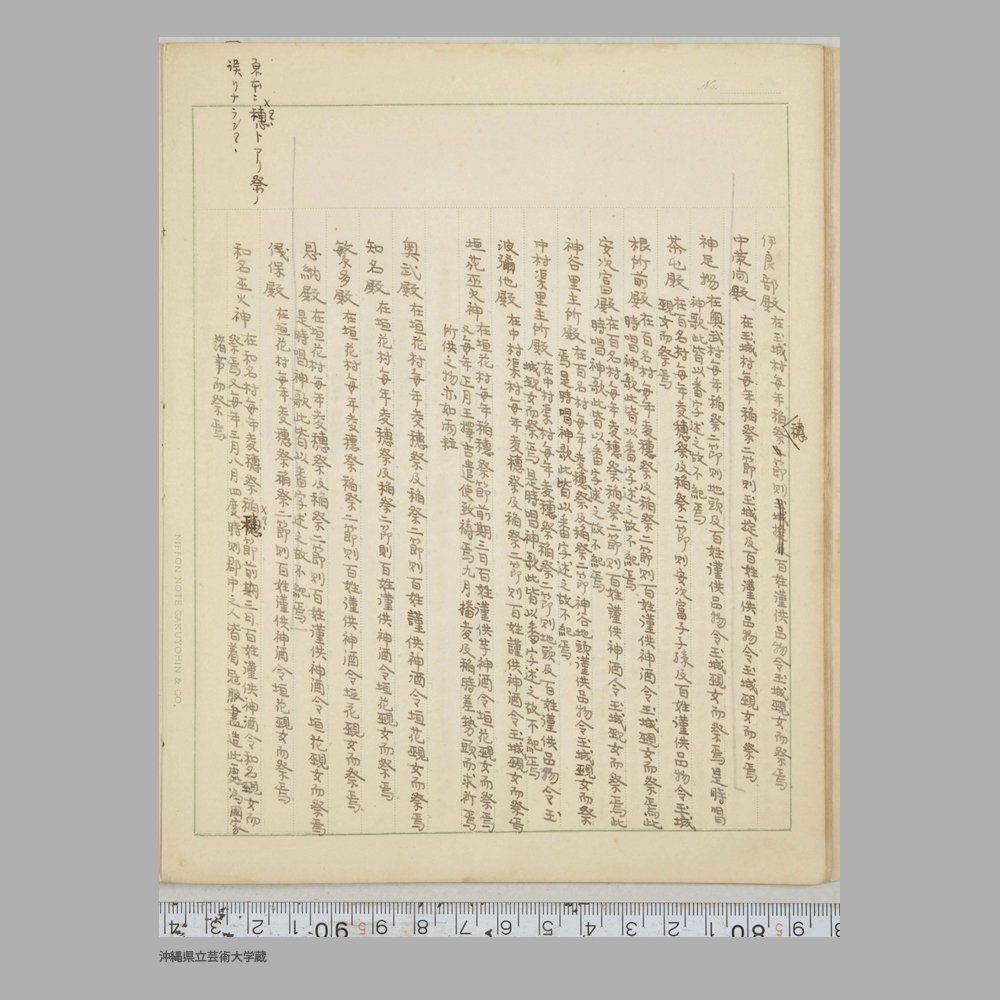 伊良部殿 在玉城村毎年稲祭二節則百姓謹供品物令玉城覡女而祭焉
穂
中栄向殿 在玉城村毎年稲祭二節則玉城掟及百姓謹供品物令玉城覡女而祭焉
神足揚 在奥武村毎年稲祭二節則地頭及百姓謹供品物令玉城覡女而祭焉是時唱
神歌此皆以番字述之故不記焉
茶山殿 在百名村毎年麦穂祭及稲祭二節則安次富子子孫及百姓謹供品物令玉城
覡女而祭焉
根所前殿 在百名村毎年麦穂祭及稲祭二節則百姓謹供神酒令玉城覡女而祭焉此
時唱神歌此皆以番字述之故不記焉
安次富殿 在百名村毎年麦穂祭稲祭二節則百姓謹供神酒令玉城覡女而祭焉此
時唱神歌此皆以番字述之故不記焉
神谷里主所殿 在百名村毎年麦穂祭及稲祭二節神谷地頭謹供品物令玉城覡女而祭
焉是時唱神歌此皆以番字述之故不記焉
中村渠里主所殿 在中村渠村毎年麦穂祭稲祭二節則地頭及百姓謹供品物令玉
城覡女而祭焉是時唱神歌此皆以番字述之故不記焉
波彌他殿 在中村渠村毎年麦穂祭及稲祭二節則百姓謹供神酒令玉城覡女而祭焉
垣花巫火神 在垣花村毎年稲穂祭節前期三日百姓謹供芋神酒令垣花覡女而祭焉
又毎年正月王擇吉遣使致祷焉九月播麦及稲時差勢頭而求祈焉
所供之物亦如両粒
奥武殿 在垣花村毎年麦穂祭及稲祭二節則百姓謹供神酒令垣花覡女而祭焉
知名殿 在垣花村毎年麦穂祭及稲祭二節則百姓謹供神酒令垣花覡女而祭焉
繁多殿 在垣花村毎年麦穂祭稲祭二節則百姓謹供神酒令垣花覡女而祭焉
恩納殿 在垣花村毎年麦穂祭及稲祭二節則百姓謹供神酒令垣花覡女而祭焉
是時唱神歌此皆以番字述之故不記焉
儀保殿 在垣花村毎年麦穂祭稲祭二節則百姓謹供神酒令垣花覡女而祭焉
和名巫火神 在和名村毎年麦穂祭稲穂節前期三日百姓謹供神酒令和名覡女而
祭焉又毎年三月八月四度時則郡中之人皆着冠服書造此恵為國家
諸事而祭焉
原本ニ穂トアリ祭ノ
誤リナラン？
No.
NIPPON NOTE GAKUYOHIN & CO.
沖縄県立芸術大学蔵